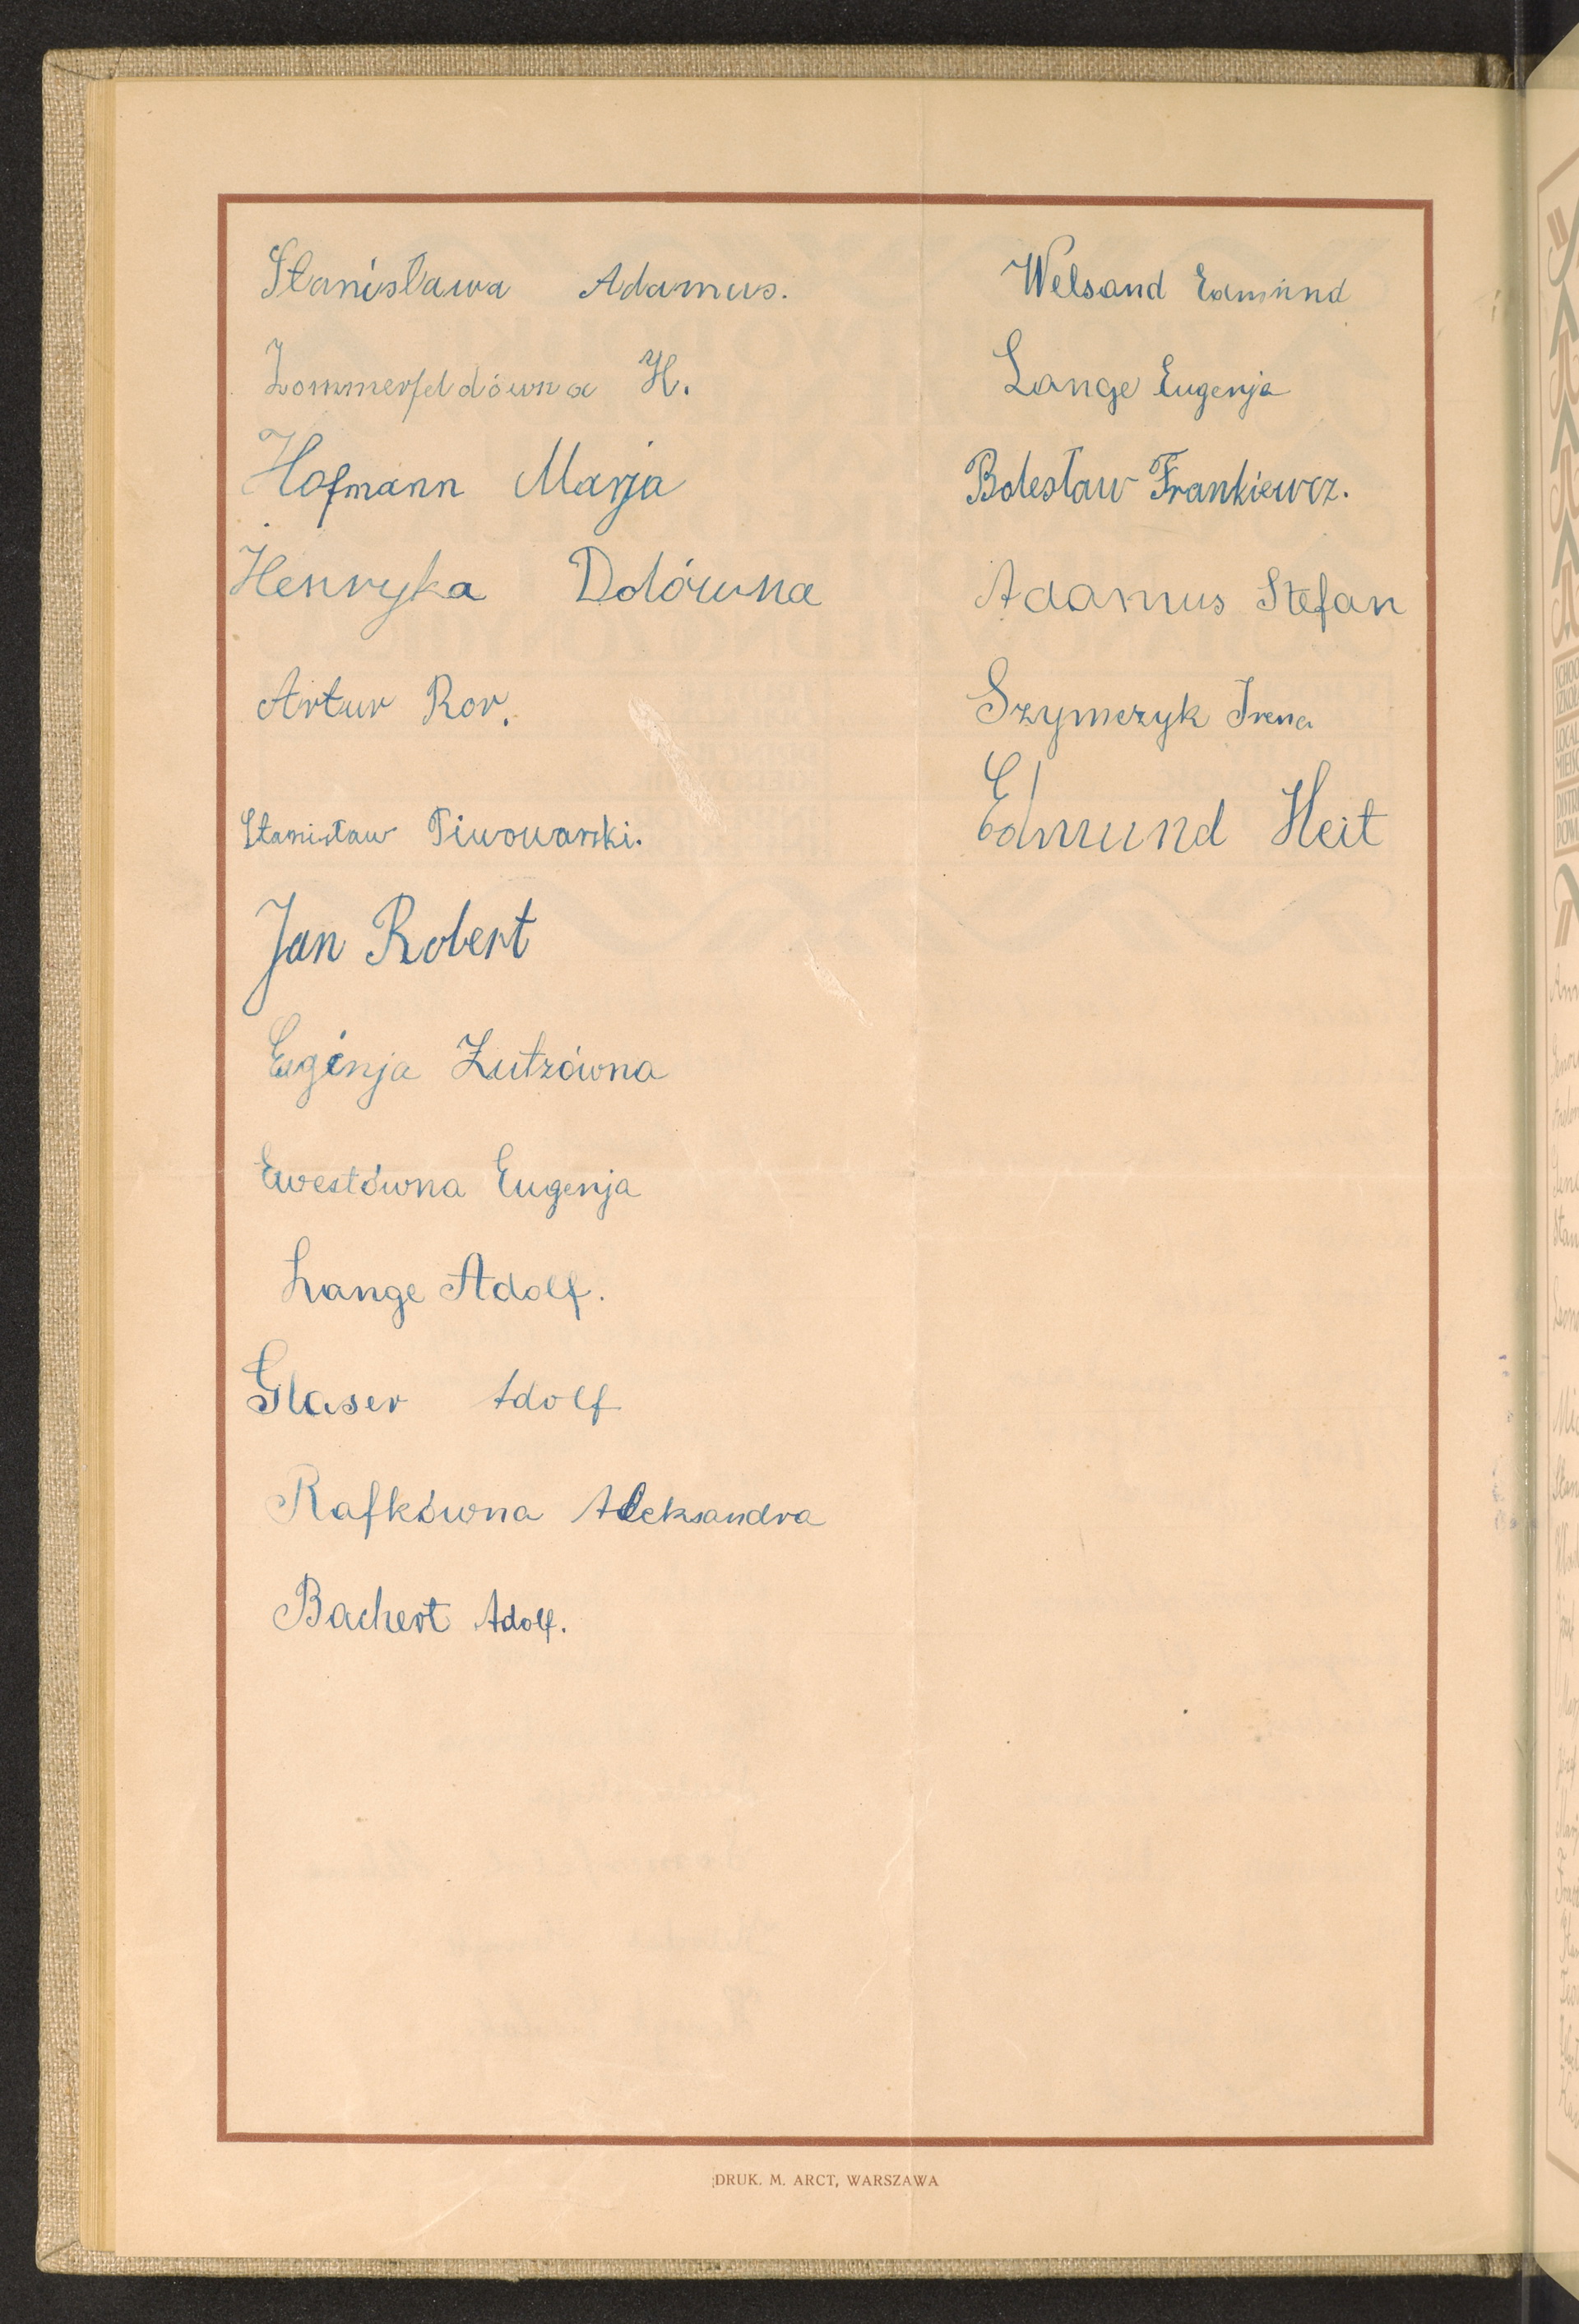 Stanisława Adamus.
Zommerfeldówna H.
Hofmann Marja
Henryka Dolówna
Artur Ror.
Stanisław Piwowarski.
Jan Robert
Eugenja Lutzówna
Ewestówna Eugenja
Lange Adolf.
Glaser Adolf
Rafkówna Aleksandra
Bachert Adolf.
Welsand Edmund
Lange Eugenja
Bolesław Frankiewicz.
Adamus Stefan
Szymczyk Irena
Edmund Heit
DRUK. M. ARCT, WARSZAWA